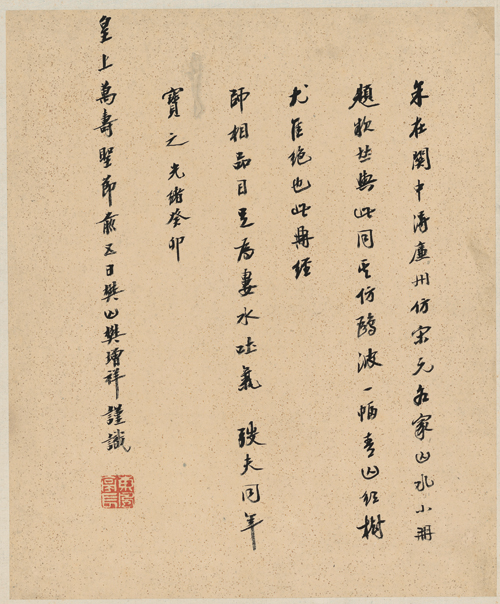 余在關中得廉州仿宋元名家山水小冊
題款與此同其仿鷗波一幅青山紅樹
尤佳絶也此冊經
師相品目足為婁水吐氣 弢夫同年
寶之光緒癸卯
皇上萬壽聖節前五日樊山樊增祥謹識